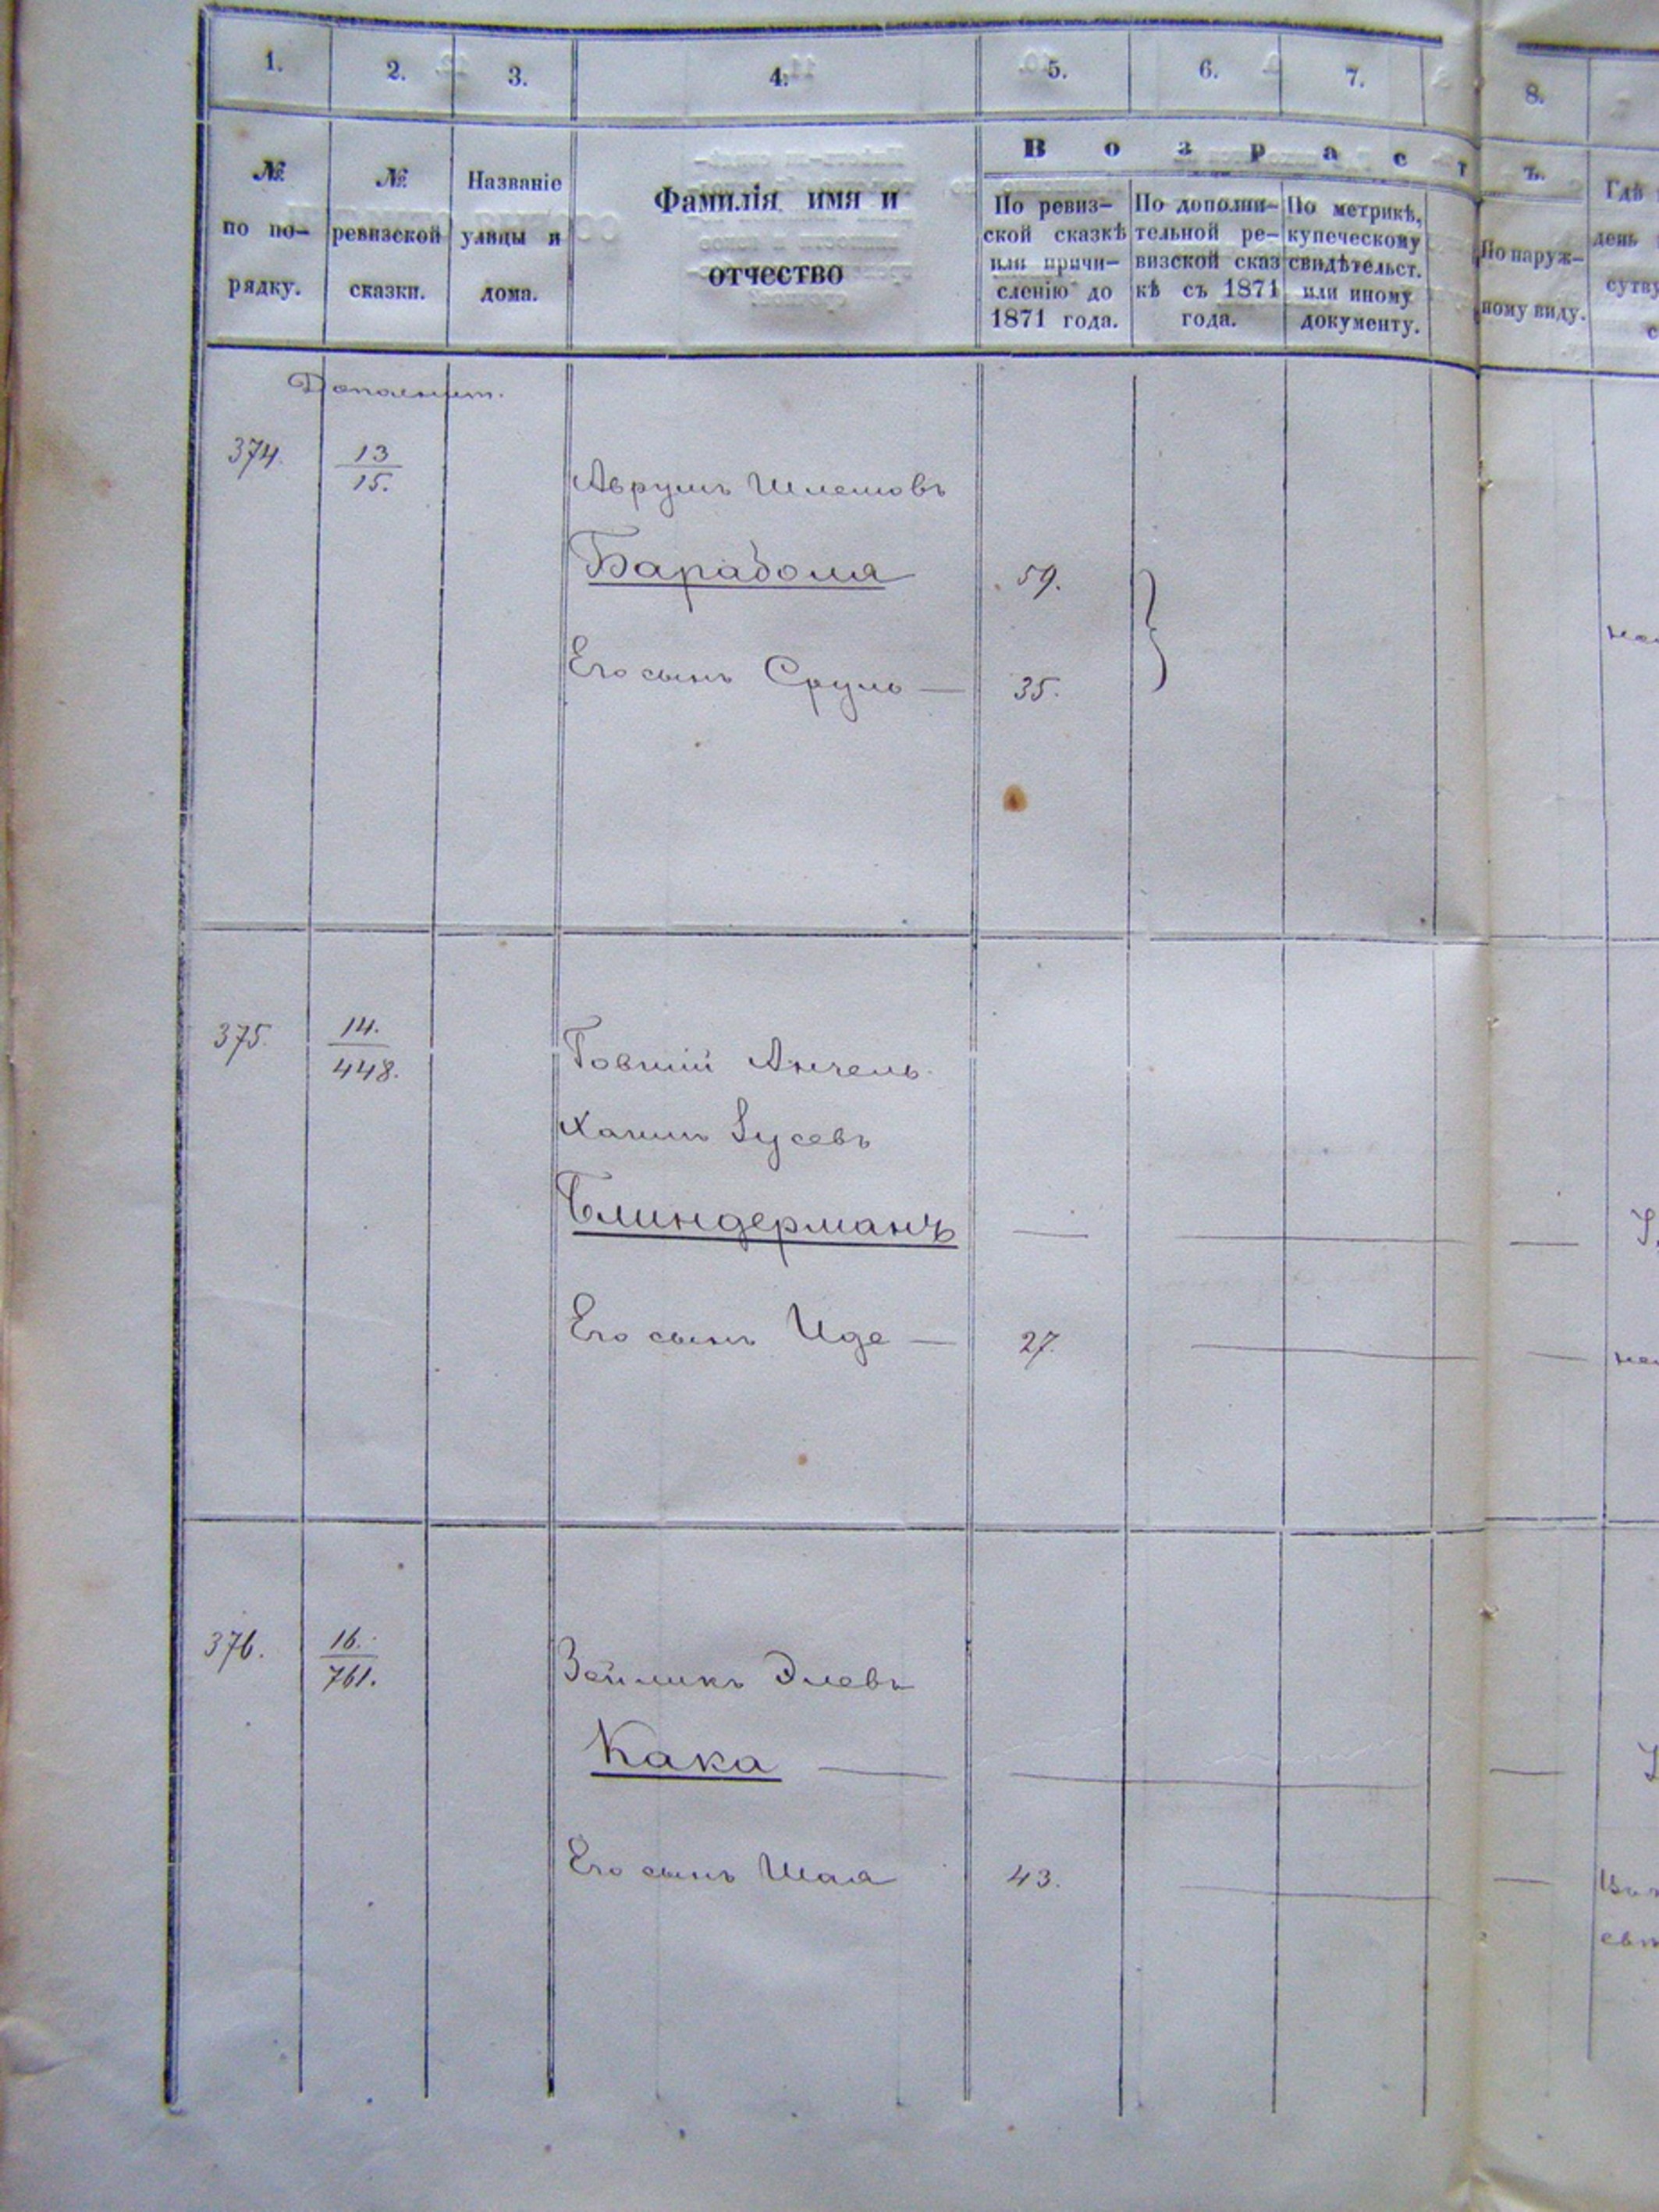 1. 2. 3. 4. 5. 6. 7. 8.
№ по по-рядку.
№ ревизской сказки.
Названіе улицы и дома.
Фамилія имя и отчество
Возрастъ.
По ревиз-
ской сказкѣ
или причи-
сленію до
1871 года.
По дополни-
тельной ре-
визской сказ
кѣ съ 1871
года.
По метрикѣ,
купеческому
свидѣтельст.
или иному
документу.
По наруж-
ному виду.
Гдѣ
день
сутву
с
Дополнит.
374. 13/15. Аврумъ Шлемовъ
Барабола 59.
Его сынъ Сруль — 35.
375. 14./448. Товшій Анчель
Хаимъ Зусевъ
Блиндерманъ —
Его сынъ Иде — 27.
376. 16./761. Зейликъ Элевъ
Кака —
Его сынъ Шая 43.